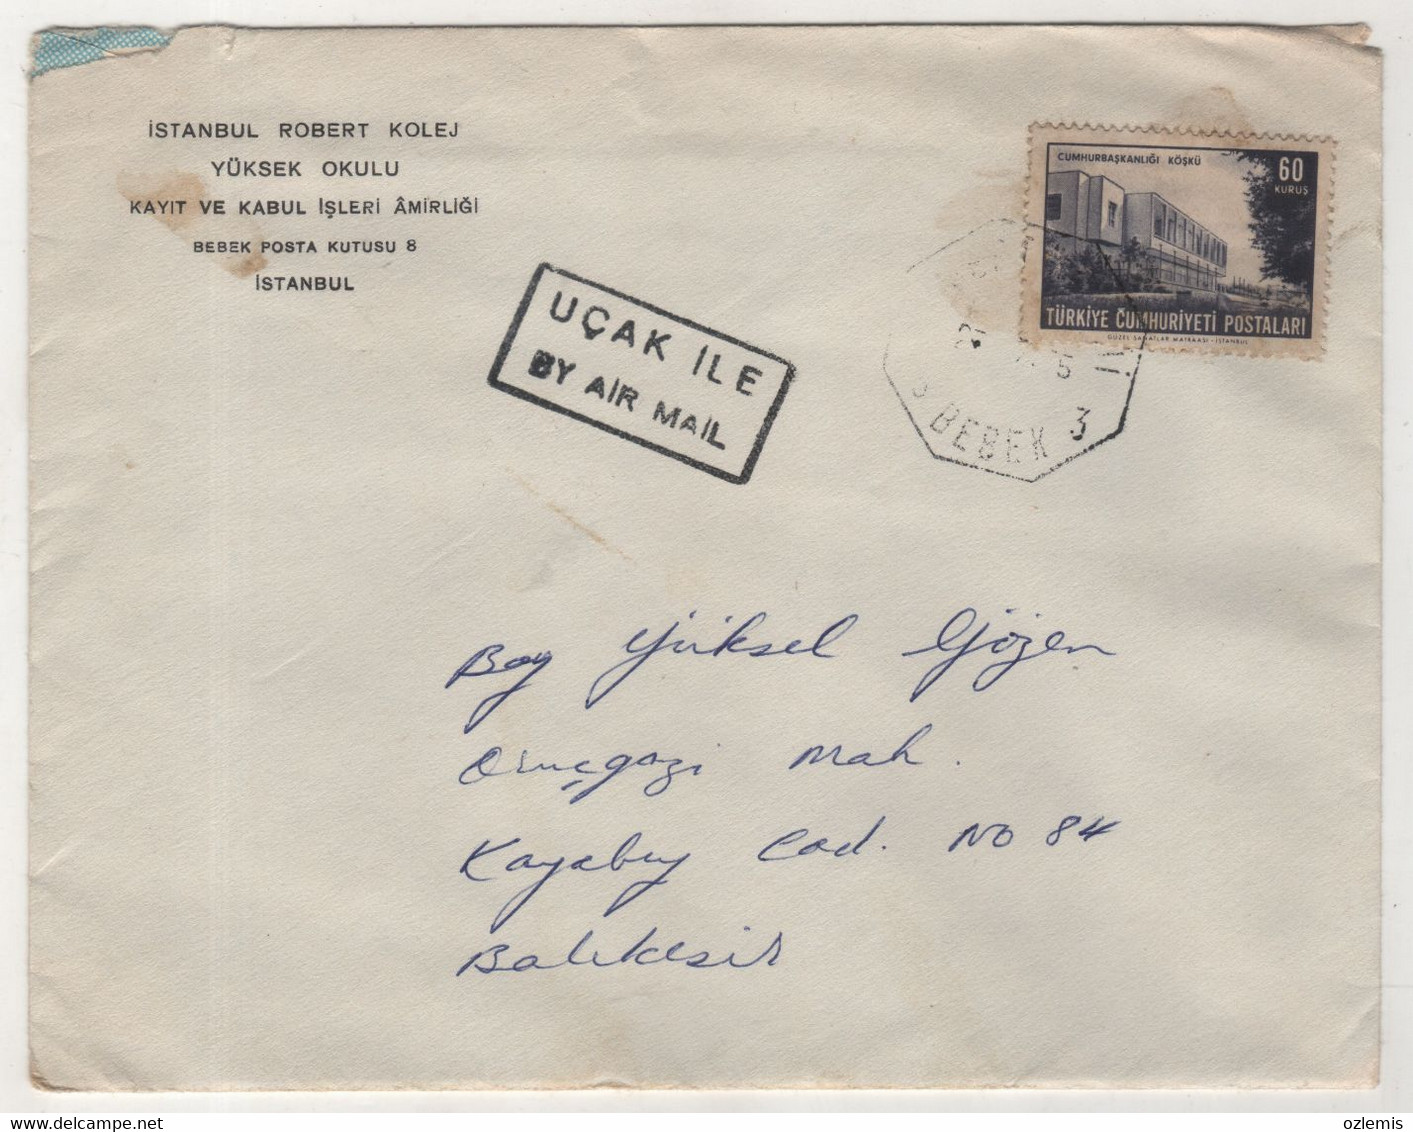 İSTANBUL ROBERT KOLEJ
YÜKSEK OKULU
KAYIT VE KABUL İŞLERİ ÂMİRLİĞİ
BEBEK POSTA KUTUSU 8
İSTANBUL
UÇAK İLE
BY AIR MAIL
CUMHURBAŞKANLIĞI KÖŞKÜ
60
KURUŞ
TÜRKİYE CUMHURİYETİ POSTALARI
GÜZEL SANATLAR MATBAASI - İSTANBUL
BEBEK 3
Bay Yüksel Gözen
Oruçgazi Mah.
Kayabey Cad. No 84
Balıkesir
ozlemis